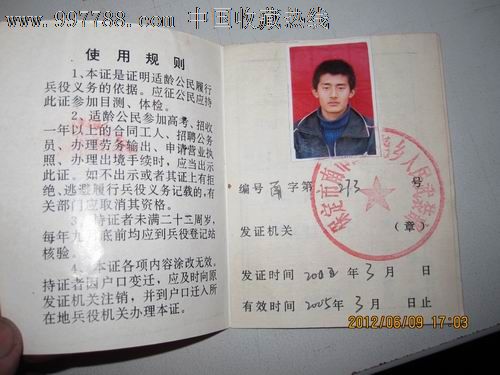 www.997788.com 中国收藏热线
使用规则
1、本证是证明适龄公民履行
兵役义务的依据。应征公民应持
此证参加目测、体检。
2、适龄公民参加高考、招收
一年以上的合同工人、招聘公务
员、办理劳务输出、申请营业执
照、办理出境手续时，应当出示
此证。如不出示或者其证上有拒
绝、逃避履行兵役义务记载的，有
关部门应取消其资格。
3、持证者未满二十三周岁，
每年九月底前均应到兵役登记站
核验。
4、本证各项内容涂改无效。
持证者因户口变迁，应及时向原
发证机关注销，并到户口迁入所
在地兵役机关办理本证。
编号 字第 213 号
发证机关 (章)
保定市南 乡人民武装部
发证时间 2002年3月 日
有效时间 2005年3月 日止
2012/06/09 17:03